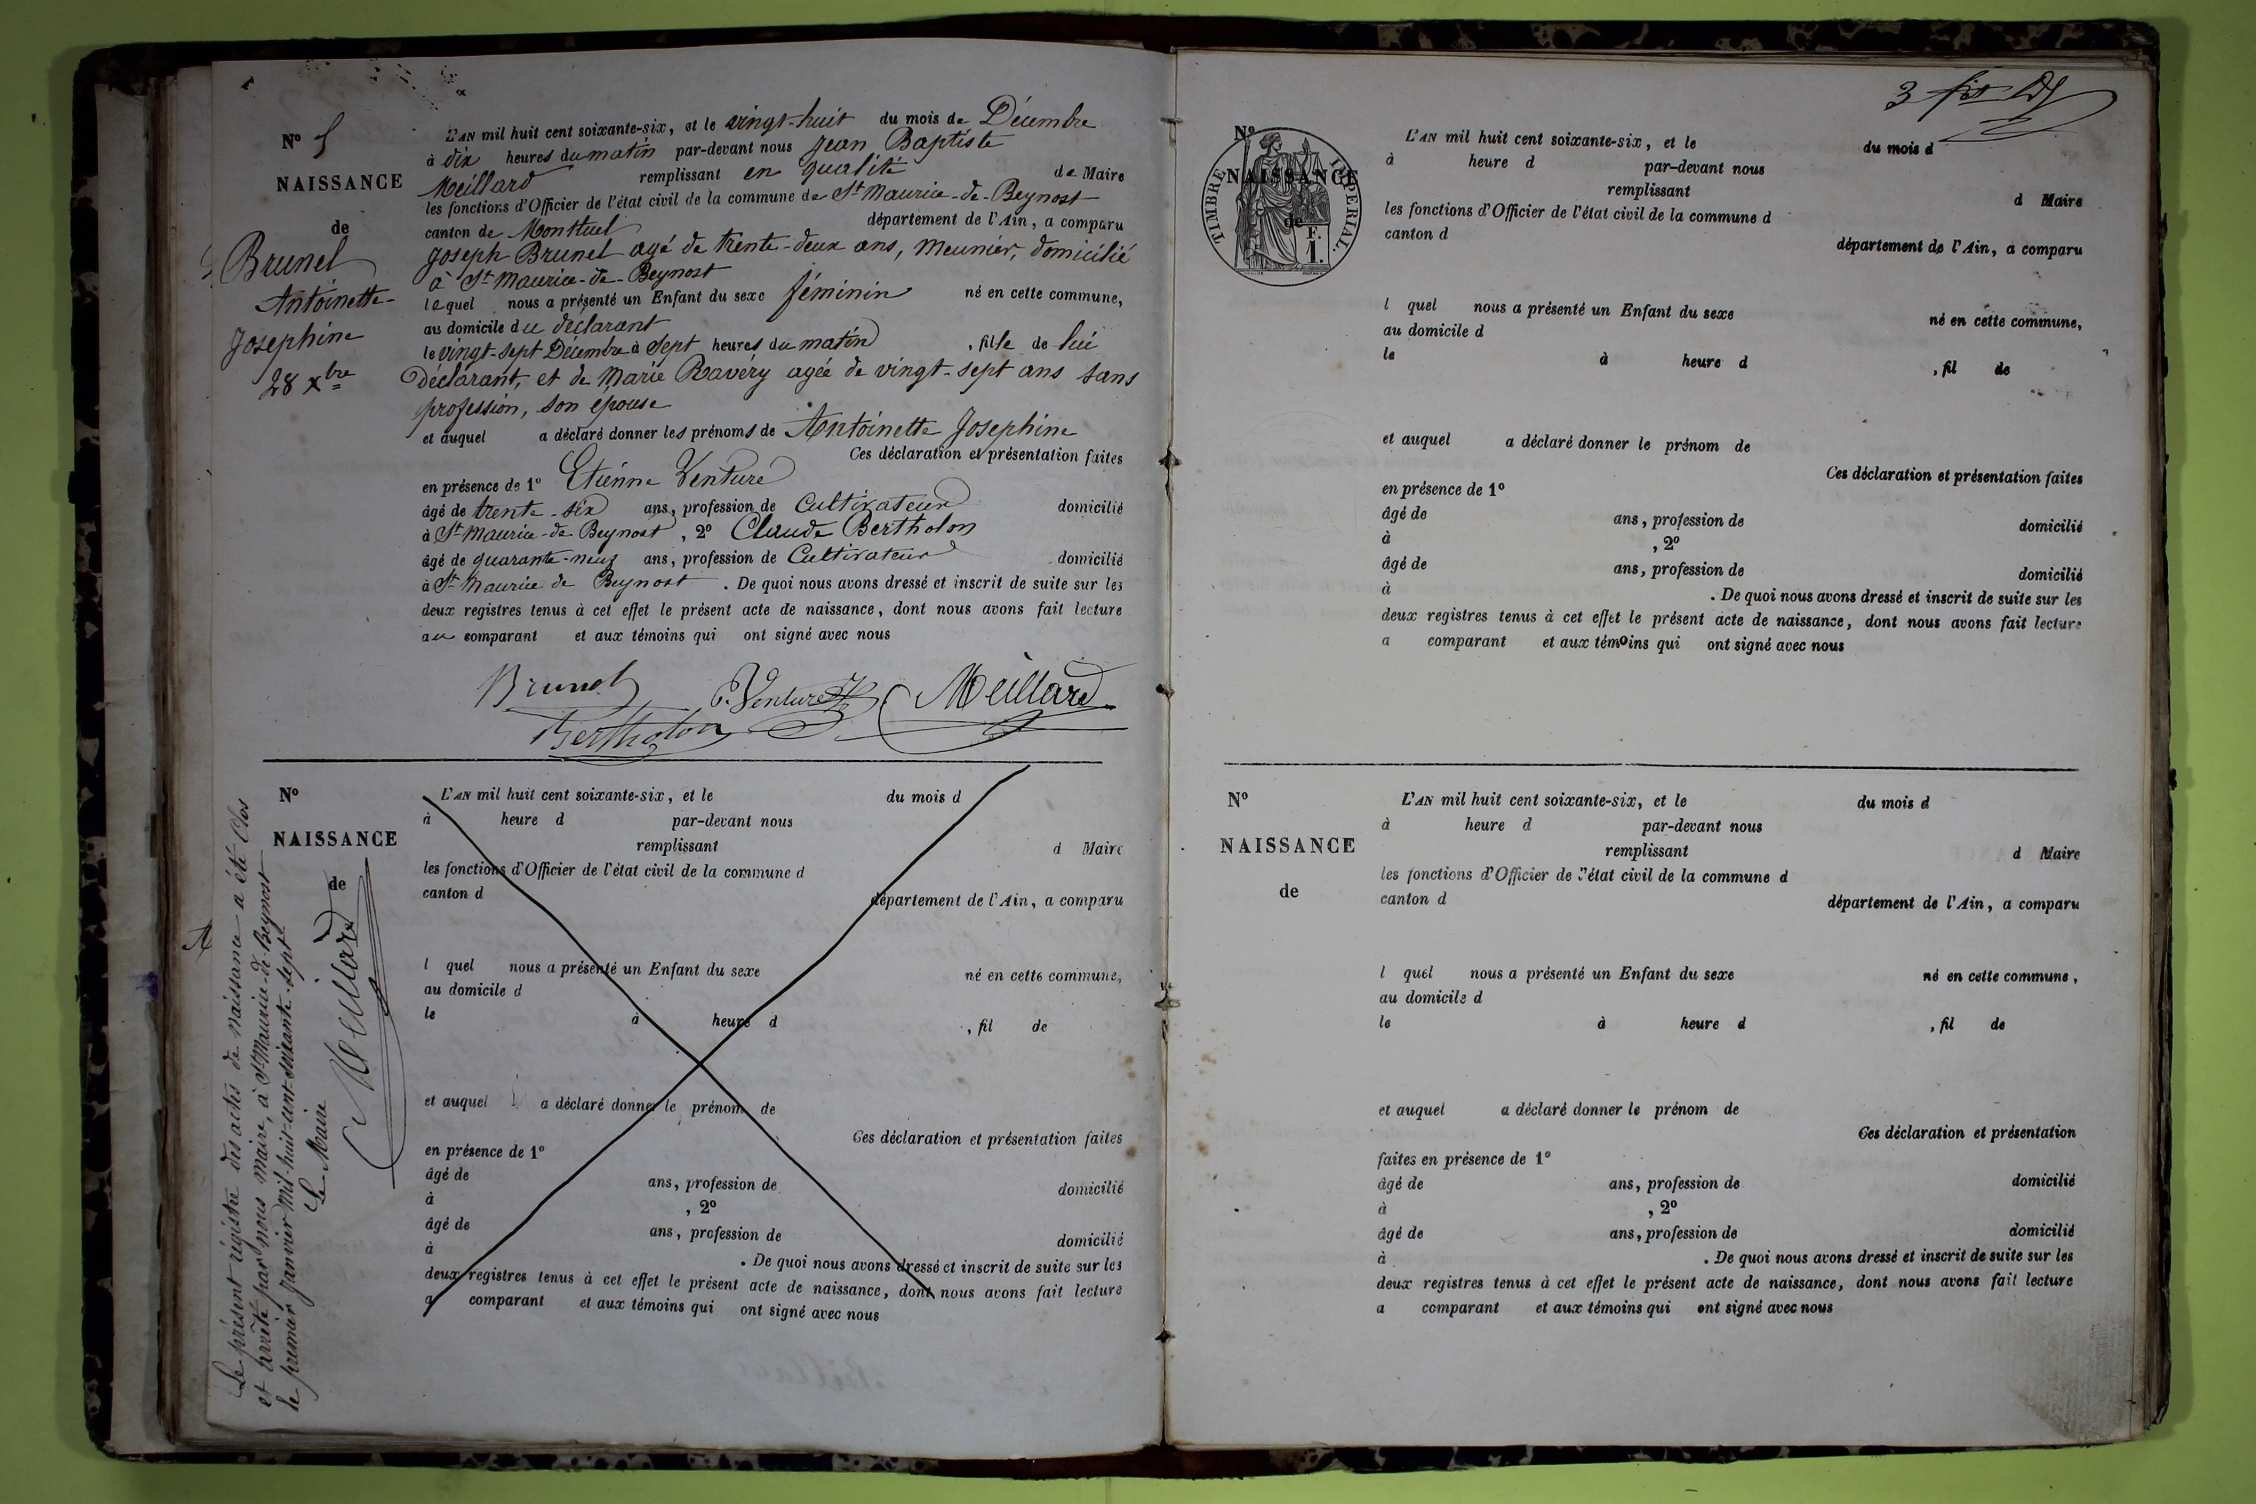 Nº 5
NAISSANCE
de
Brunel
Antoinette-
Josephine
28 Xbre
L'AN mil huit cent soixante-six, et le vingt-huit du mois de Décembre
à dix heures du matin par-devant nous Jean Baptiste
Meillard remplissant en qualité de Maire
les fonctions d'Officier de l'état civil de la commune de St Maurice-de-Beynost
canton de Montluel département de l'Ain, a comparu
Joseph Brunel agé de trente-deux ans, Meunier, domicilié
à St Maurice-de-Beynost
lequel nous a présenté un Enfant du sexe féminin né en cette commune,
au domicile du déclarant
le vingt-sept Décembre à sept heures du matin, fille de lui
déclarant, et de Marie Ravéry agée de vingt-sept ans sans
profession, son épouse
et auquel a déclaré donner les prénoms de Antoinette Josephine
Ces déclaration et présentation faites
en présence de 1º Etienne Venture
âgé de trente-six ans, profession de Cultivateur domicilié
à St Maurice-de-Beynost, 2º Claude Bertholon
âgé de quarante-neuf ans, profession de Cultivateur domicilié
à St Maurice de Beynost. De quoi nous avons dressé et inscrit de suite sur les
deux registres tenus à cet effet le présent acte de naissance, dont nous avons fait lecture
au comparant et aux témoins qui ont signé avec nous
Brunel Venture Meillard
Bertholon
Nº
NAISSANCE
de
L'AN mil huit cent soixante-six, et le du mois d
à heure d par-devant nous
remplissant d Maire
les fonctions d'Officier de l'état civil de la commune d
canton d département de l'Ain, a comparu
l quel nous a présenté un Enfant du sexe né en cette commune,
au domicile d
le à heure d , fil de
et auquel a déclaré donner le prénom de
Ces déclaration et présentation faites
en présence de 1º
âgé de ans, profession de domicilié
à , 2º
âgé de ans, profession de domicilié
à . De quoi nous avons dressé et inscrit de suite sur les
deux registres tenus à cet effet le présent acte de naissance, dont nous avons fait lecture
a comparant et aux témoins qui ont signé avec nous
Le présent régistre des actes de naissance a été clos
et arrêté par nous maire, à St Maurice-de-Beynost
le premier Janvier mil-huit-cent-soixante-sept
Le Maire
Meillard
3
Nº
NAISSANCE
de
TIMBRE IMPERIAL.
F.
1.
L'AN mil huit cent soixante-six, et le du mois d
à heure d par-devant nous
remplissant d Maire
les fonctions d'Officier de l'état civil de la commune d
canton d département de l'Ain, a comparu
l quel nous a présenté un Enfant du sexe né en cette commune,
au domicile d
le à heure d , fil de
et auquel a déclaré donner le prénom de
Ces déclaration et présentation faites
en présence de 1º
âgé de ans, profession de domicilié
à , 2º
âgé de ans, profession de domicilié
à . De quoi nous avons dressé et inscrit de suite sur les
deux registres tenus à cet effet le présent acte de naissance, dont nous avons fait lecture
a comparant et aux témoins qui ont signé avec nous
Nº
NAISSANCE
de
L'AN mil huit cent soixante-six, et le du mois d
à heure d par-devant nous
remplissant d Maire
les fonctions d'Officier de l'état civil de la commune d
canton d département de l'Ain, a comparu
l quel nous a présenté un Enfant du sexe né en cette commune,
au domicile d
le à heure d , fil de
et auquel a déclaré donner le prénom de
Ces déclaration et présentation
faites en présence de 1º
âgé de ans, profession de domicilié
à , 2º
âgé de ans, profession de domicilié
à . De quoi nous avons dressé et inscrit de suite sur les
deux registres tenus à cet effet le présent acte de naissance, dont nous avons fait lecture
a comparant et aux témoins qui ont signé avec nous